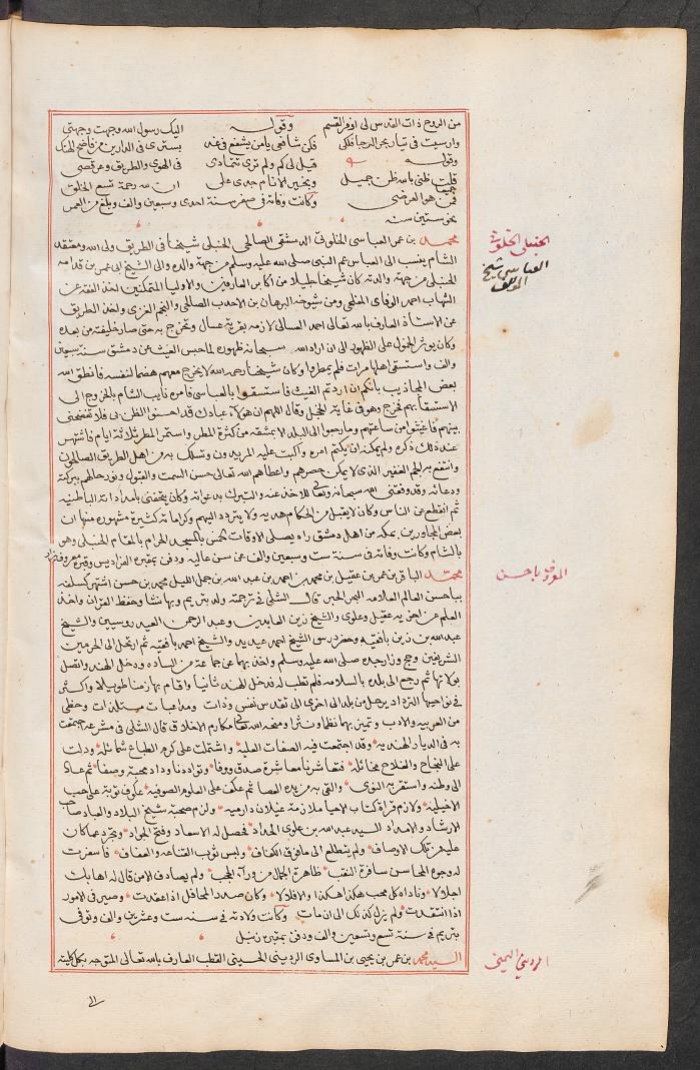 من الروح ذات القدس لى اوفر القسم وقوله اليك رسول الله وجهت وجهتى
وارسيت فى تيار بحر الرجا فلكى فكن شافعى يا من يشفع فى غد بسترى فى الدارين من فاضح الهتك
وقوله قيل لى كم ولم ترى تتمادى فى الهوى والطريق وعر قصى
قلت ظنى بالله ظن جميل وبخير الانام جدى على ان لله رحمة تسع الخلق جميعا
فمن هو العرضى وكانت وفاته فى صفر سنة احدى وسبعين والف وبلغ من العمر
نحو ستين سنه
محمد بن عمر العباسى الخلوتى الدمشقى الصالحى الحنبلى شيخنا فى الطريق ولى الله ومعتقد
الشام ينسب الى العباس عم النبى صلى الله عليه وسلم من جهة والده والى الشيخ ابى عمر بن قدامه
الحنبلى من جهة والدته كان شيخا جليلا من اكابر العارفين والاوليا المتمكنين اخذ الفقه عن
الشهاب احمد الوفاى المفلحى ومن شيوخه البرهان بن الاحدب الصالحى والنجم الغزى واخذ الطريق
عن الاستاذ العارف بالله تعالى احمد العسالى لازمه بقرية عسال وتخرج به حتى صار خليفته من بعده
وكان يوثر الخمول على الظهور الى ان اراد الله سبحانه ظهوره لما حبس الغيث عن دمشق سنة سبعين
والف واستسقى اهلها مرات فلم يمطروا وكان شيخنا رحمه الله لا يخرج معهم هضما لنفسه فانطق الله
بعض المجاذيب بانكم ان اردتم الغيث فاستسقوا بالعباسى فامره نايب الشام بالخروج الى
الاستسقا بهم فخرج وهو فى غاية الخجل وقال اللهم ان هولاء عبادك قد احسنوا الظن بى فلا تفضحنى
بينهم فاغيثوا من ساعتهم وما رجعوا الى البلد الا بمشقه من كثرة المطر واستمر المطر ثلاثة ايام فاشتهر
عند ذلك ذكره ولم يمكنه ان يكتم امره واكبت عليه المريدون وتسلك به من اهل الطريق الصالحون
وانتفع به الجم الغفير الذى لا يمكن حصرهم واعطاهم الله تعالى حسن السمت والقبول ونور حالهم ببركته
ودعائه وقد وفقنى الله سبحانه وتعالى للاخذ عنه والتبرك بدعواته وكان يتحفنى بامداداته الباطنيه
ثم انقطع عن الناس وكان لا يقبل من الحكام هديه ولا يتردد اليهم وكراماته كثيرة مشهوره منها ان
بعض المجاورين بمكه من اهل دمشق راه يصلى الاوقات الخمس بالمسجد الحرام بالمقام الحنبلى وهو
بالشام وكانت وفاته فى سنة ست وسبعين والف عن سن عاليه ودفن بمقبرة الفراديس وقبره معروف يزار
محمد الباقر بن عمر بن عقيل بن محمد بن احمد بن عبد الله بن جمل الليل محمد بن حسن اشتهر كسلفه
بباحسن العالم العلامه البحر الحبر قال الشلى فى ترجمته ولد بتريم وبها نشا وحفظ القران واخذ
العلم عن اخويه عقيل وعلوى والشيخ زين العابدين وعبد الرحمن العيدروسيين والشيخ
عبد الله بن زين بافقيه وحضر درس الشيخ احمد عيديد والشيخ احمد بافقيه ثم ارتحل الى الحرمين
الشريفين وحج وزار جده صلى الله عليه وسلم واخذ بهما عن جماعة من الساده ودخل الهند واتصل
بولاتها ثم رجع الى بلده بالسلامه فلم تطب له فدخل الهند ثانيا واقام بها زمنا طويلا واكثر
فى نواحيها الترداد يرحل من بلد الى اخرى الى تقدس نفس وذات ومداعبات مستلذات وحظى
من العربيه والادب وتميز بهما نظما ونثرا ومنحه الله تعالى مكارم الاخلاق قال الشلى فى مشرعه اجتمعت
به فى الديار الهنديه وقد اجتمعت فيه الصفات العليه واشتملت على كرم الطباع شمائله ودلت
على النجاح والفلاح مخائله فتعاشرنا معاشرة صدق ووفا وتواددنا وداد محبة وصفا ثم عاد
الى وطنه واستقر به النوى والقى به من يده العصا ثم عكف على العلوم الصوفيه عكوف توبة على حب
الاخيليه ولازم قراة كتاب الاحيا ملازمة غيلان دار ميه ولزم صحبة شيخ البلاد والعباد صاحب
الارشاد والامداد السيد عبد الله بن علوى الحداد فحصل له الاسعاد وفتح الجواد وتجرد عما كان
عليه من تلك الاوصاف ولم يتطلع الى ما فوق الكفاف ولبس ثوب القناعه والعفاف فاسفرت
له وجوه المحاسن سافرة النقب ظاهرة الجمال من ورا الحجب ولم يصادف الا من قال له اهابك
اجلالا وناداه كل محب هكذا هكذا والا فلا لا وكان صدر المحافل اذا عقدت وصيرفى الامور
اذا انتقدت ولم يزل كذلك الى ان مات وكانت ولادته فى سنه ست وعشرين والف وتوفى
بتريم فى سنة تسع وتسعين والف ودفن بمقبرة زنبل
السيد محمد بن عمر بن يحيى بن المساوى الردينى الحسينى القطب العارف بالله تعالى المتوجه بكل كليته
الحنبلى الخلوتى
العباسى شيخ
المولف
المعروف باحسن
الردينى اليمنى